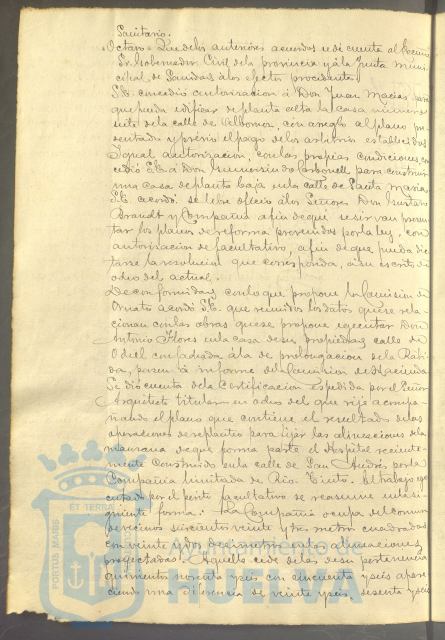 Sanitario.
Octavo = Que de los anteriores acuerdos se dé cuenta al Excmo
Sr. Gobernador Civil de la provincia y á la Junta muni-
cipal de Sanidad á los efectos procedentes.
S.E. concedió autorización á Don Juan Macías para
que pueda edificar de planta alta la casa número
siete de la calle de Valbonio, con arreglo al plano pre-
sentado y prévio el pago de los arbitrios establecidos
Igual autorización, con las propias condiciones con-
cedió S.E. á Don Gumersindo Carbonell para construir
una casa de planta baja en la calle de Santa María.
S.E. acordó se libre oficio á los Señores Don Gustavo
Brandt y Compañía a fin de que se sirvan presen-
tar los planos de reforma prevenidos por la ley, con
autorización de facultativo, a fin de que pueda dic-
tarse la resolución que corresponda, á su escrito de
ocho del actual.
De conformidad con lo que propone la Comisión de
Ornato acordó S.E. que reunidos los datos que se rela-
cionan con las obras que se propone ejecutar Don
Antonio Flores en la casa de su propiedad, calle de
Odiel con fachada á la de prolongación de la Rábi-
da, pasen á informe de la Comisión de Hacienda
Se dió cuenta de la Certificación expedida por el Señor
Arquitecto titular en ocho del que rije acompa-
ñando el plano que contiene el resultado de las
operaciones de replanteo para fijar las alineaciones de la
manzana de que forma parte el Hospital reciente-
mente construido en la calle de San Andrés por la
Compañía limitada de Rio-Tinto. El trabajo eje-
cutado por el perito facultativo se resume en la si-
guiente forma: La Compañía ocupa del comun
de vecinos seiscientos veinte y tres metros cuadrados
con veinte y dos decímetros en las alineaciones
proyectadas. Aquella cede de las de su pertenencia
quinientos noventa y seis con cincuenta y seis apare-
ciendo una diferencia de veinte y seis, sesenta y seis
PORTUS MARIS ET TERRÆ
Ayuntamiento de
HUELVA